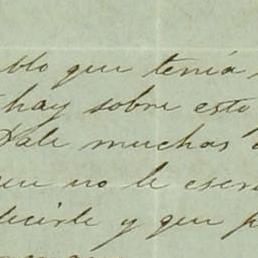 que tenía,
hay sobre esto
Dale muchas
que no le escri
decirle y que p